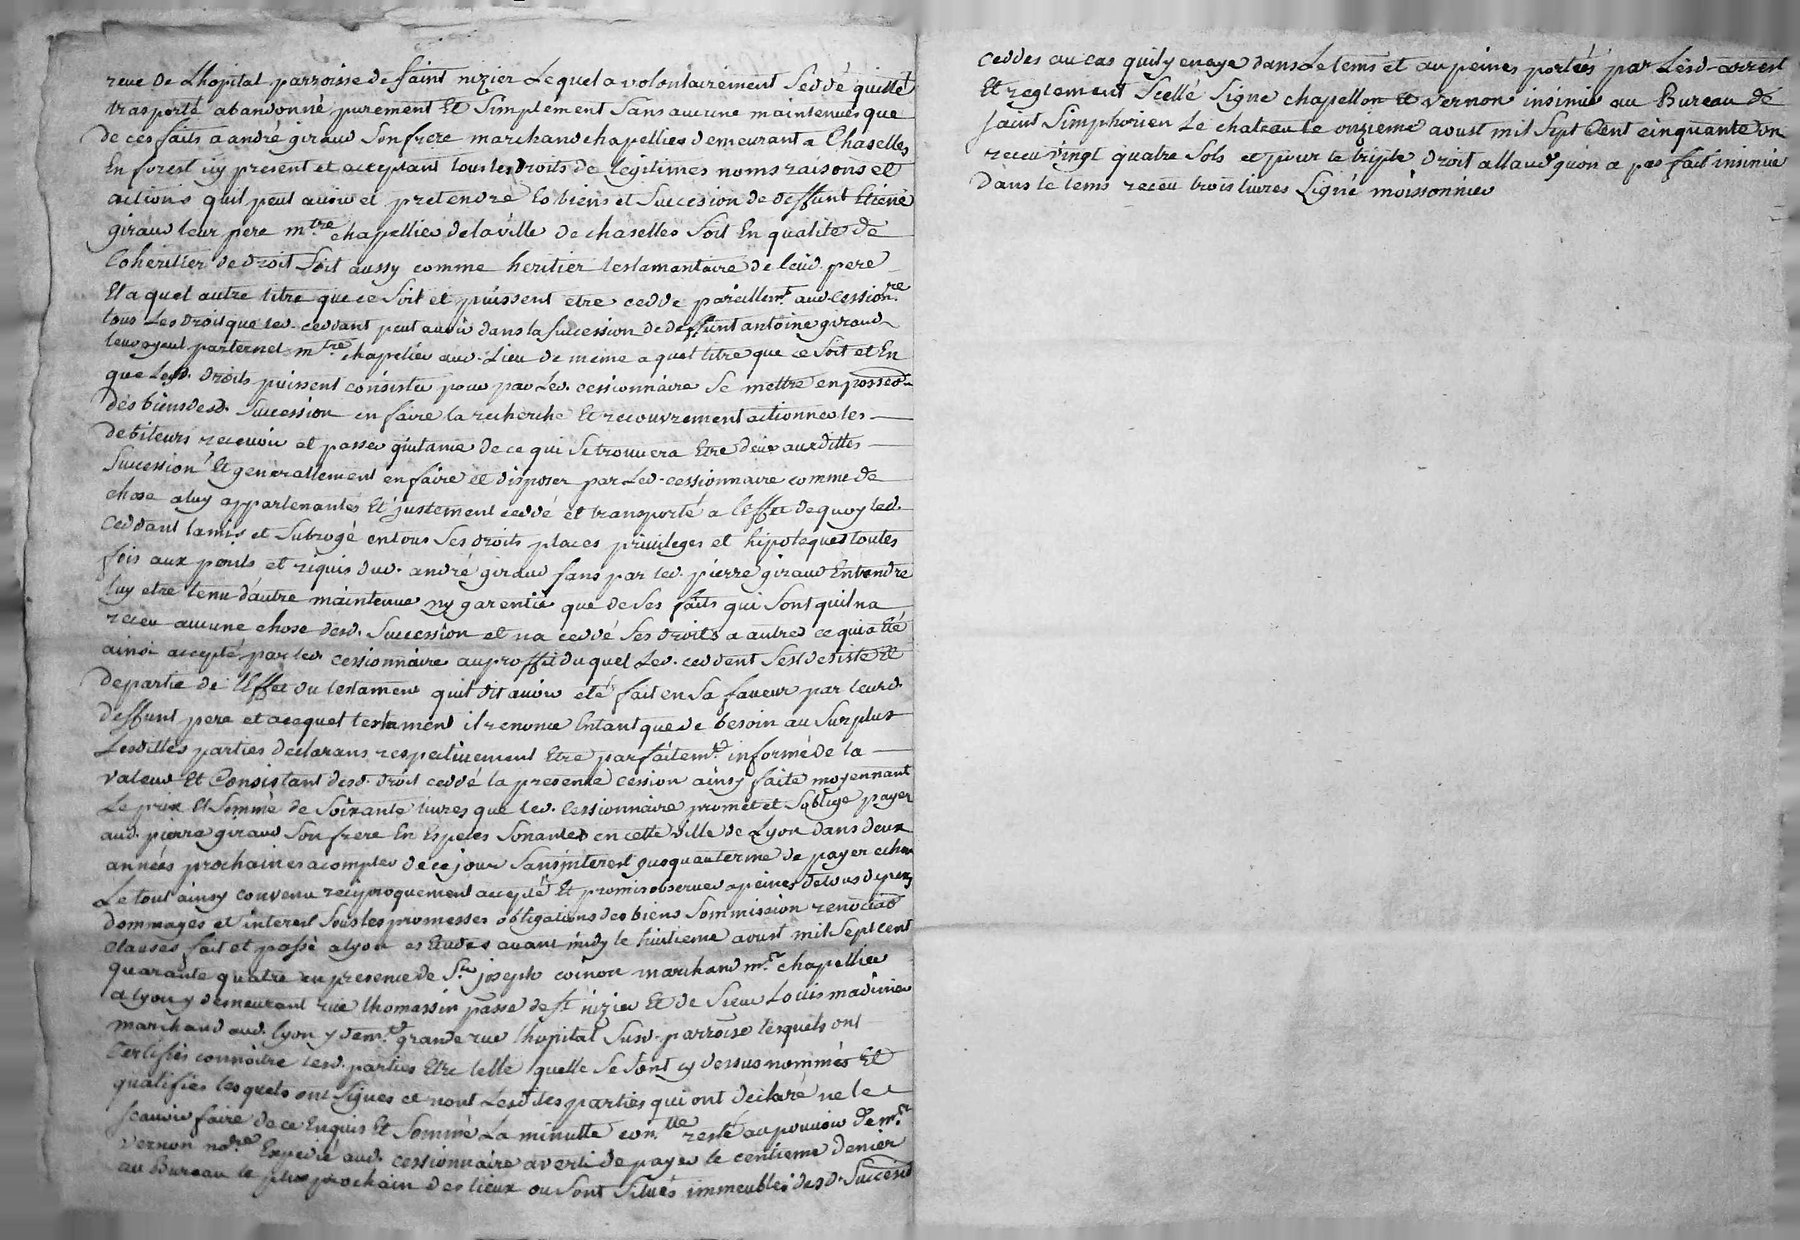 rüe de Lhopital parroisse de saint nizier Lequel a volontairement Ceddé quitté
trasporté abandonné purement Et Simplement Sans aucune maintenue que
de ces faits a andré giraud Son frere marchand chapellier demeurant a Chaselles
En forest icy present et acceptant tous les droits de legitimes noms raisons et
actions quil peut avoir et pretendre Es biens et Succession de deffunt Etiene
giraud leur pere mtre chapellier de la ville de chaselles Soit En qualité de
Coheritier de droit Soit aussy comme heritier testamantaire de leud. pere
Et a quel autre titre que ce Soit et puissent etre cedde pareillemt. aud. cessionre.
tous Les droits que led. ceddant peut avoir dans la succession de deffunt antoine giraud
leur ayeul parternel mtre chapelier aud. Lieu de meme a quel titre que ce Soit et En
que Lesd. droits puissent consister pour par Led. cessionnaire Se mettre en posseson
des biens desd. Succession en faire la recherche Et recouvrement actionner les
debiteurs recevoir et passer quitance de ce qui Se trouvera Etre deüe auxdittes
Succession Et generallement en faire et disposer par Led. cessionnaire comme de
chose a luy appartenantes Et justement ceddé et transporté a l'Effet de quoy led.
Ceddant la mis et Subrogé en tous Ses droits places privileges et hipoteques toutes
fois aux perils et riquis dud. andré giraud sans par led. pierre giraud Entendre
luy etre tenu d'autre maintenue ny garentie que de Ses faits qui Sont quil na
receu aucune chose desd. Succession et na ceddé Ses droits a autres ce qui a Eté
ainsi accepté par led. cessionnaire au proffit du quel Led. ceddent Sest desisté Et
departie de l'Effet du testament quil dit avoir eté fait en Sa faveur par leurd.
deffunt pere et acequel testament il renonce Entant que de besoin au Surplus
Lesdittes parties declarans respectivement Etre parfaitemt. informé de la
valeur Et Consistant desd. droit ceddé la presente cession ainsy faite moyennant
Le prix Et Somme de Soixante livres que led. Cessionnaire promet et Soblige payer
aud. pierre giraud Son frere En Especes Sonantes en cette ville de Lyon dans deux
années prochaines a compter de ce jour Sans interest jusqu au terme de payer echeu
Le tout ainsy convenu reciproquement accepté Et promis observer a peines de tous depens
dommages et interest Sous les promesses obligations des biens Sommission renociaon
clauses fait et passé a lyon es Etudes avant midy le huitieme aoust mil Sept cent
quarante quatre en presence de Sr. joseph coinon marchand mre. chapellier
a lyon y demeurant rue thomassin passe de st nizier Et de Sieur Louis madinier
marchand aud. lyon y demt. grande rue lhopital Susd. parroise lesquels ont
Certifiés connoitre lesd. parties Etre telle quelle Se Sont cy dessus nommés Et
qualifies lesquels ont Signes ce nont Lesdites parties qui ont declaré ne le
scavoir faire de ce Enquis Et Sommé La minutte contlle. resté au pouvoir de mre.
vernon nore. Expedié aud. cessionnaire averti de payer le centieme denier
au Bureau le plus prochain des lieux ou Sont Situés immeubles desd. Successions
ceddes au cas quil y en aye dans Le tems et au peines portées par Lesd. arrest
Et reglement Scellé Signé chapellon Et vernon insinué au Bureau de
saint Simphorien Le chateau le onzieme aoust mil Sept Cent cinquante un
receu vingt quatre Sols et pour le triple droit attandu quon a pas fait insinüe
Dans le tems receu trois livres Signé moissonnier